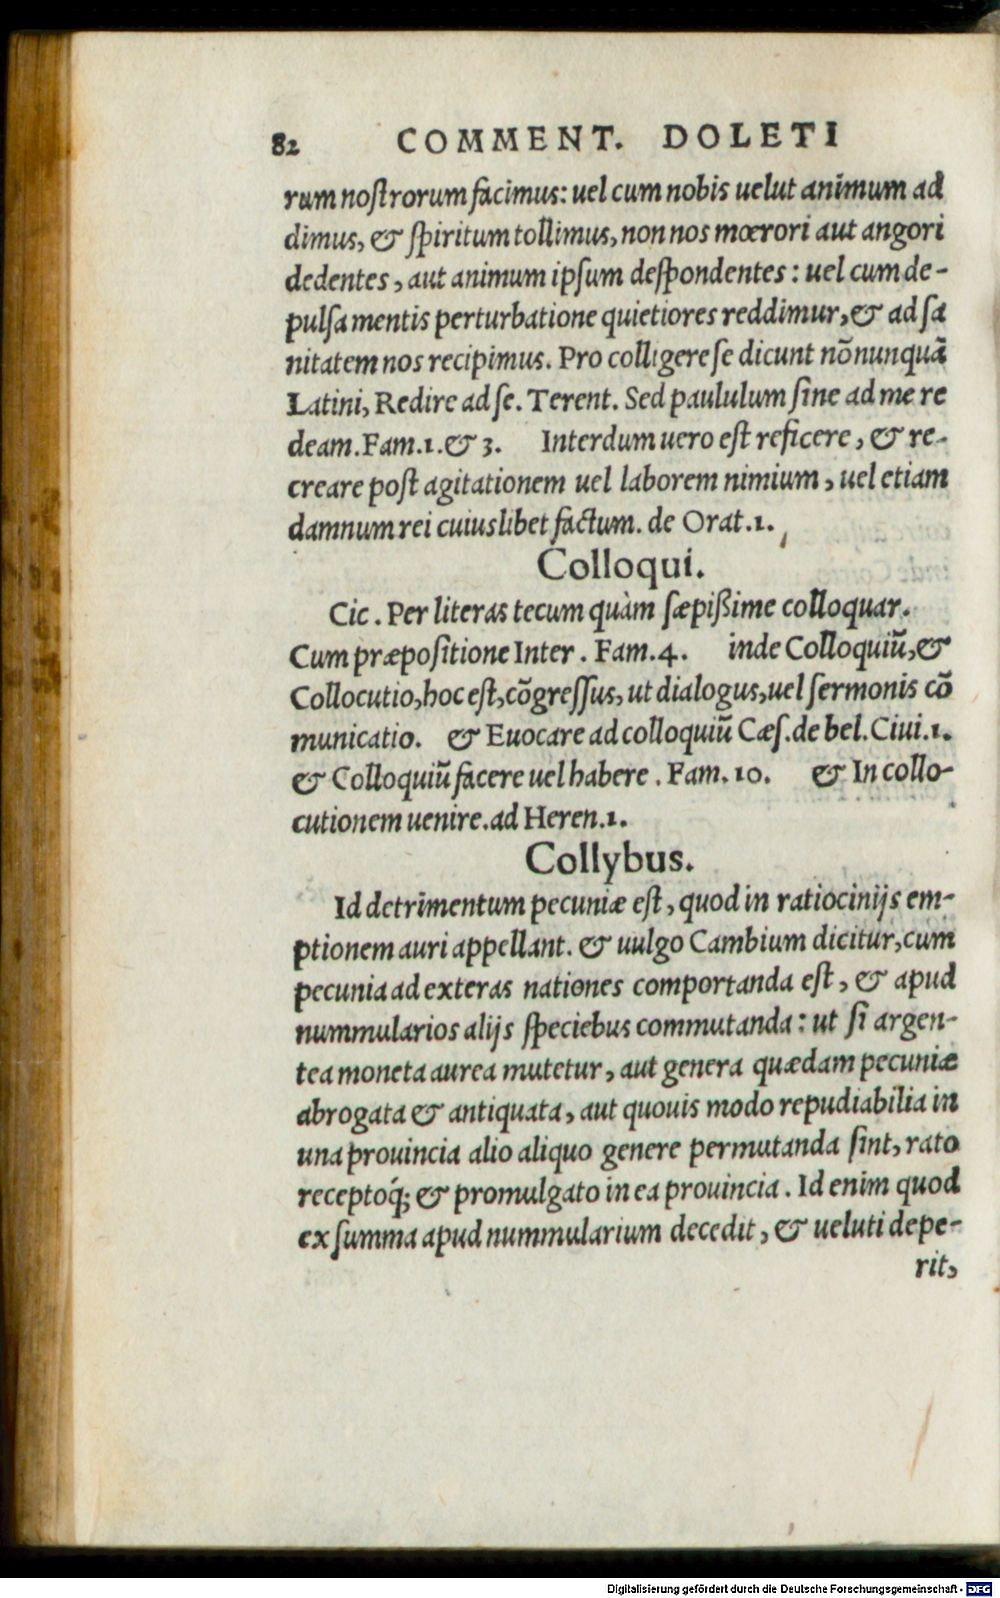 82 COMMENT. DOLETI
rum nostrorum facimus: uel cum nobis uelut animum ad
dimus, & spiritum tollimus, non nos mœrori aut angori
dedentes, aut animum ipsum despondentes: uel cum de-
pulsa mentis perturbatione quietiores reddimur, & ad sa
nitatem nos recipimus. Pro colligere se dicunt nõnunquã
Latini, Redire ad se. Terent. Sed paululum sine ad me re
deam. Fam.1.& 3. Interdum uero est reficere, & re-
creare post agitationem uel laborem nimium, uel etiam
damnum rei cuiuslibet factum. de Orat.1.
Colloqui.
Cic. Per literas tecum quàm sæpißime colloquar.
Cum præpositione Inter. Fam.4. inde Colloquiũ, &
Collocutio, hoc est, cõgressus, ut dialogus, uel sermonis cõ
municatio. & Euocare ad colloquiũ Cæs. de bel. Ciui.1.
& Colloquiũ facere uel habere. Fam. 10. & In collo-
cutionem uenire. ad Heren.1.
Collybus.
Id detrimentum pecuniæ est, quod in ratiocinijs em-
ptionem auri appellant. & uulgo Cambium dicitur, cum
pecunia ad exteras nationes comportanda est, & apud
nummularios alijs speciebus commutanda: ut si argen-
tea moneta aurea mutetur, aut genera quædam pecuniæ
abrogata & antiquata, aut quouis modo repudiabilia in
una prouincia alio aliquo genere permutanda sint, rato
receptóq; & promulgato in ea prouincia. Id enim quod
ex summa apud nummularium decedit, & ueluti depe-
rit,
Digitalisierung gefördert durch die Deutsche Forschungsgemeinschaft - DFG